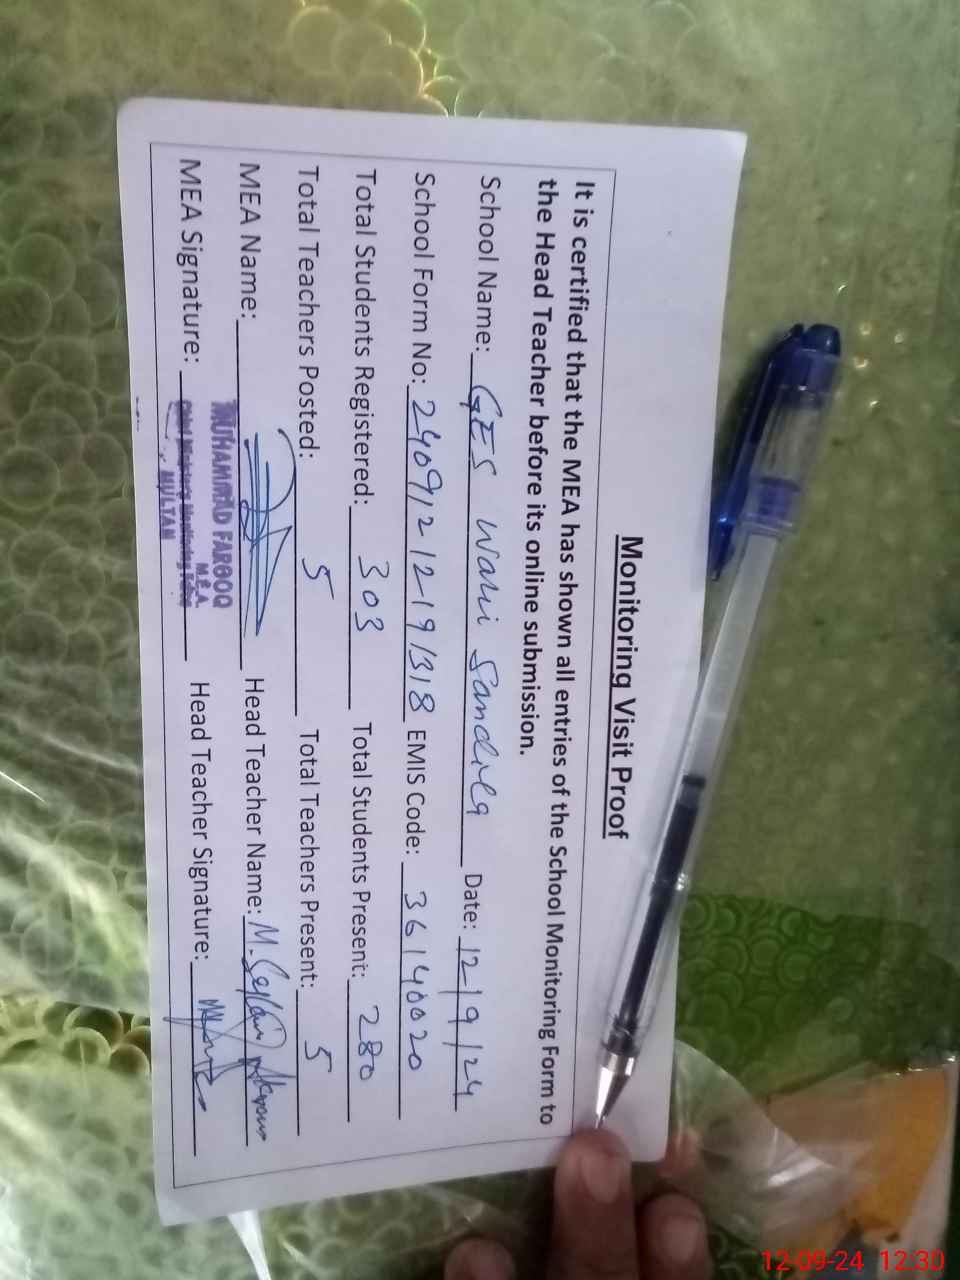 Monitoring Visit Proof
It is certified that the MEA has shown all entries of the School Monitoring Form to
the Head Teacher before its online submission.
School Name: GES Wali Sandila Date: 12/9/24
School Form No: 24091212191318 EMIS Code: 36140020
Total Students Registered: 303 Total Students Present: 280
Total Teachers Posted: 5 Total Teachers Present: 5
MEA Name: Head Teacher Name: M.
MUHAMMAD FAROOQ
M.E.A.
MEA Signature: Head Teacher Signature:
Chief Minister's Monitoring Force
MULTAN
12-09-24 12:30